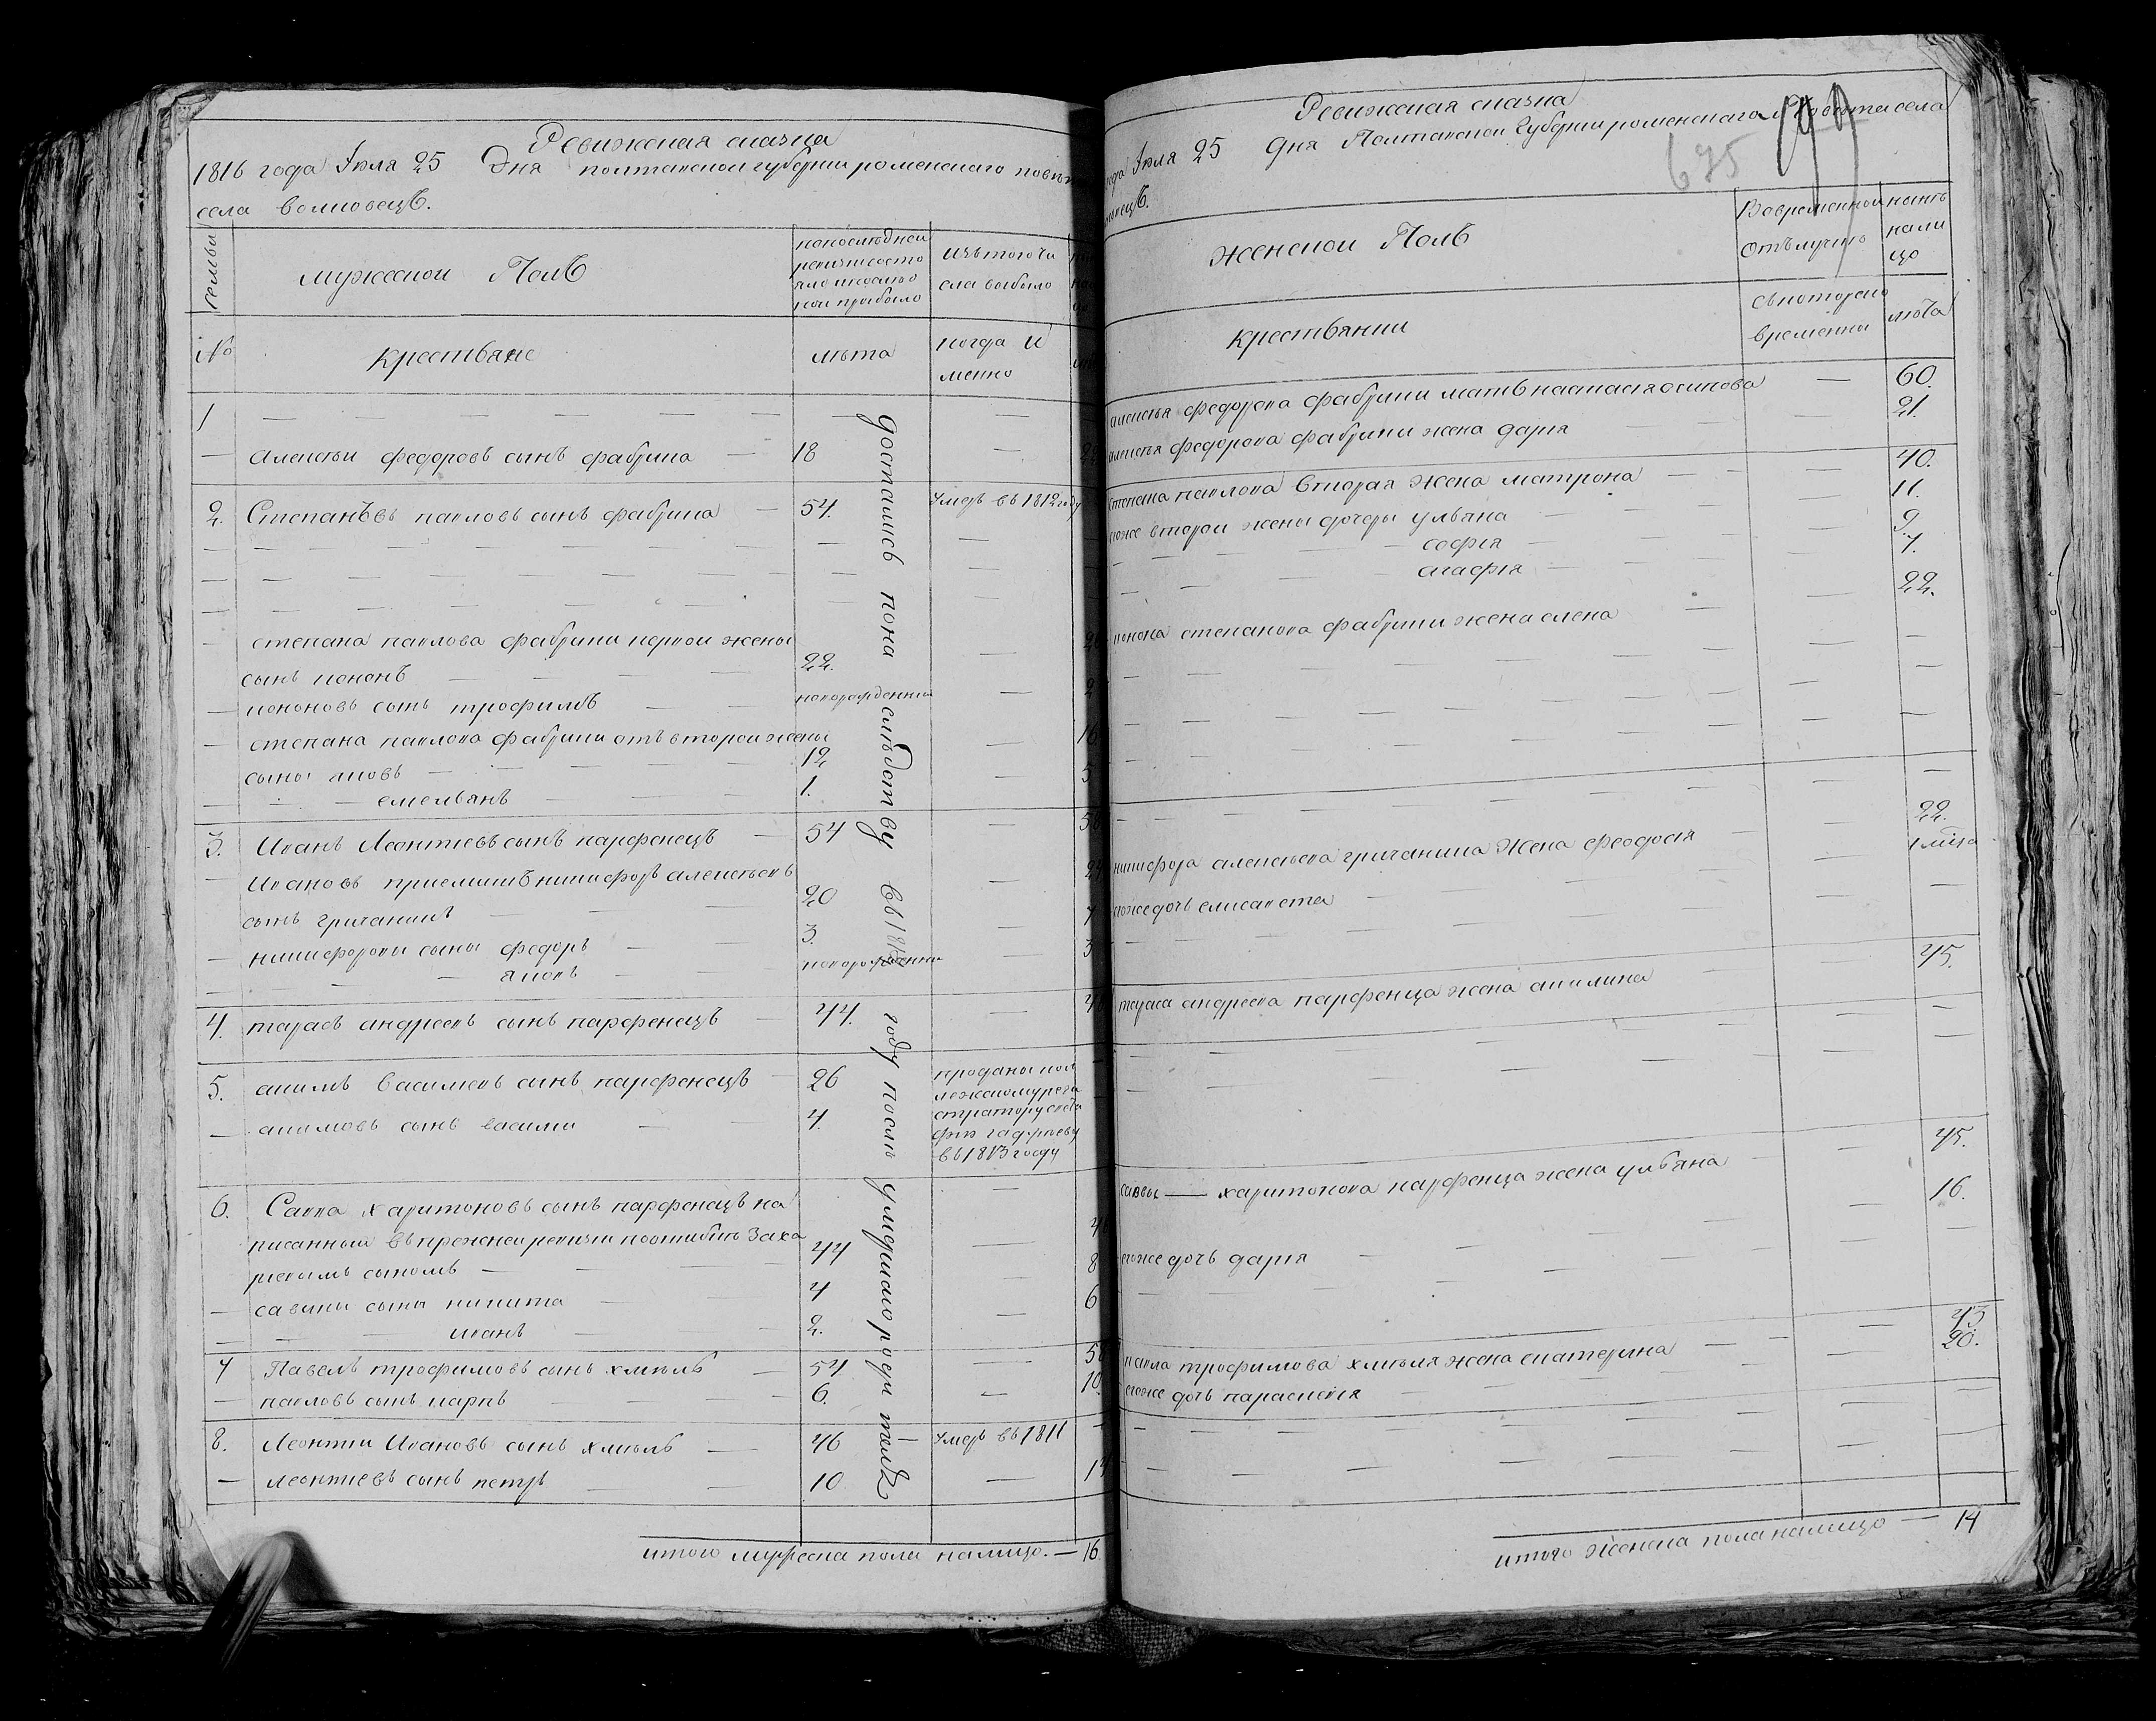 Ревижская сказка
1816 года Iюля 25 Дня полтавской губернии роменского повета
села волковецъ.
семьи
мужеской Полъ
по последней ревизи состояло и после оной прибыло
изъ того числа выбыло
№
крестьяне
лѣта
когда именно
1 — — —
— алексѣй федоровъ сынъ фабрика — 18 —
2. Степанъ павловъ сынъ фабрика — 54. Умеръ въ 1812 году
степана павлова фабрики первой жены
сынъ кононъ — 22. —
— кононовъ сынъ трофимъ — новорожденний — 2
— степана павлова фабрики отъ второй жены
сыны яковъ — 12 — 16
— емельянъ — 1. — 5
3. Иванъ Леонтиевъ сынъ парфенецъ — 54 —
— Ивановъ приемишъ никифоръ алексѣевъ
сынъ гричаникъ — 20 — 24
— никифоровы сыны федоръ — 3. — 7
— яковъ — новорожденни — 3
4. тарасъ андреевъ сынъ парфенецъ — 44. —
5. акимъ василевъ сынъ парфенецъ — 26
— акимовъ сынъ васили — 4.
проданы кол
лежскому реги
стратору
въ 1813 году
6. Савва харитоновъ сынъ парфенецъ на
писанный въ прежней ревизи поошибке Заха
риевымъ сыномъ — 44 —
— саввины сыны никита — 4 — 8
— иванъ — 2. — 6
7 Павелъ трофимовъ сынъ хмѣль — 54 —
— павловъ сынъ карпъ — 6. — 10.
8. Леонтии Ивановъ сынъ хмѣль — 46 — Умеръ въ 1811
— леонтиевъ сынъ петръ — 10 —
достались по наследству въ году после умершаго родителя
итого мужеска пола налицо. — 16
Ревижская сказка
года Iюля 25 дня Полтавской Губернии роменского Повета села
675
женской Полъ
Вовременной отълучкѣ
нынѣ налицо
крестьянки
съ которого времени
лѣта
алексѣя федорова фабрики мать настасия осипова — 60.
алексѣя федорова фабрики жена дария — 21.
степана павлова вторая жена матрона — 40.
его же второй жены дочеры ульяна — 11.
софия — 9.
агафия — 7.
конона степанова фабрики жена елена — 22.
никифора алексѣева гричаника Жена феодосия — 22.
его же дочь елисавета —
тараса андреева парфенца жена акилина — 45.
саввы — харитонова парфенца жена ульяна — 45.
его же дочь дария — 16.
павла трофимова хмѣля жена екатерина — 43
его же дочь параскевия — 20.
итого женска пола налицо — 14